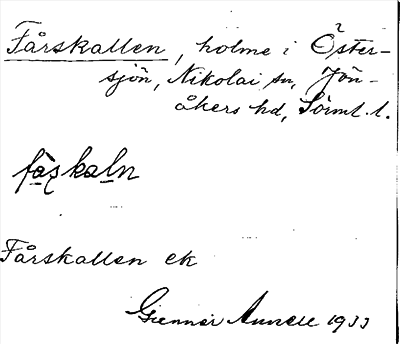 Fårskallen, holme i Öster-
sjön, Nikolai sn, Jön-
åkers hd, Sörml. l.
fåskaln
Fårskallen ek
Gunnar 1933